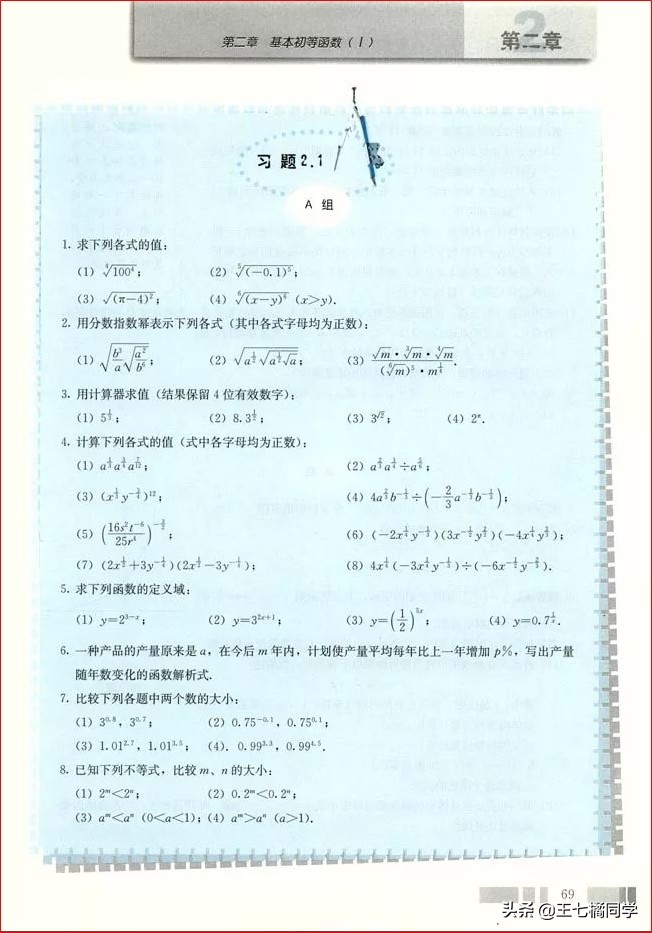 第二章 基本初等函数(Ⅰ)
第二章
习题2.1
A 组
1. 求下列各式的值：
(1) ⁴√100⁴； (2) ⁵√(−0.1)⁵；
(3) √(π−4)²； (4) ⁶√(x−y)⁶ (x>y).
2. 用分数指数幂表示下列各式(其中各式字母均为正数)：
(1) √(b³/a √(a²/b⁶))； (2) √(a^(1/2) √(a^(1/2) √a))； (3) (√m · ³√m · ⁴√m)/((⁶√m)⁵ · m^(1/4)).
3. 用计算器求值(结果保留4位有效数字)：
(1) 5^(1/3)； (2) 8.3^(1/2)； (3) 3^√2； (4) 2^π.
4. 计算下列各式的值(式中各字母均为正数)：
(1) a^(1/3) a^(3/4) a^(7/12)； (2) a^(2/3) a^(3/4) ÷ a^(5/6)；
(3) (x^(1/3) y^(−3/4))¹²； (4) 4a^(2/3) b^(−1/3) ÷ (−2/3 a^(−1/3) b^(−1/3))；
(5) (16s²t⁻⁶/25r⁴)^(−3/2)； (6) (−2x^(1/4) y^(−1/3))(3x^(−1/2) y^(2/3))(−4x^(1/4) y^(2/3))；
(7) (2x^(1/2)+3y^(−1/4))(2x^(1/2)−3y^(−1/4))； (8) 4x^(1/4)(−3x^(1/4) y^(−1/3))÷(−6x^(−1/2) y^(−2/3)).
5. 求下列函数的定义域：
(1) y=2^(3−x)； (2) y=3^(2x+1)； (3) y=(1/2)^(5x)； (4) y=0.7^(1/x).
6. 一种产品的产量原来是a，在今后m年内，计划使产量平均每年比上一年增加p%，写出产量
随年数变化的函数解析式.
7. 比较下列各题中两个数的大小：
(1) 3^0.8，3^0.7； (2) 0.75^−0.1，0.75^0.1；
(3) 1.01^2.7，1.01^3.5； (4). 0.99^3.3，0.99^4.5.
8. 已知下列不等式，比较m、n的大小：
(1) 2^m<2^n； (2) 0.2^m<0.2^n；
(3) a^m<a^n (0<a<1)； (4) a^m>a^n (a>1).
69
头条 @王七橘同学